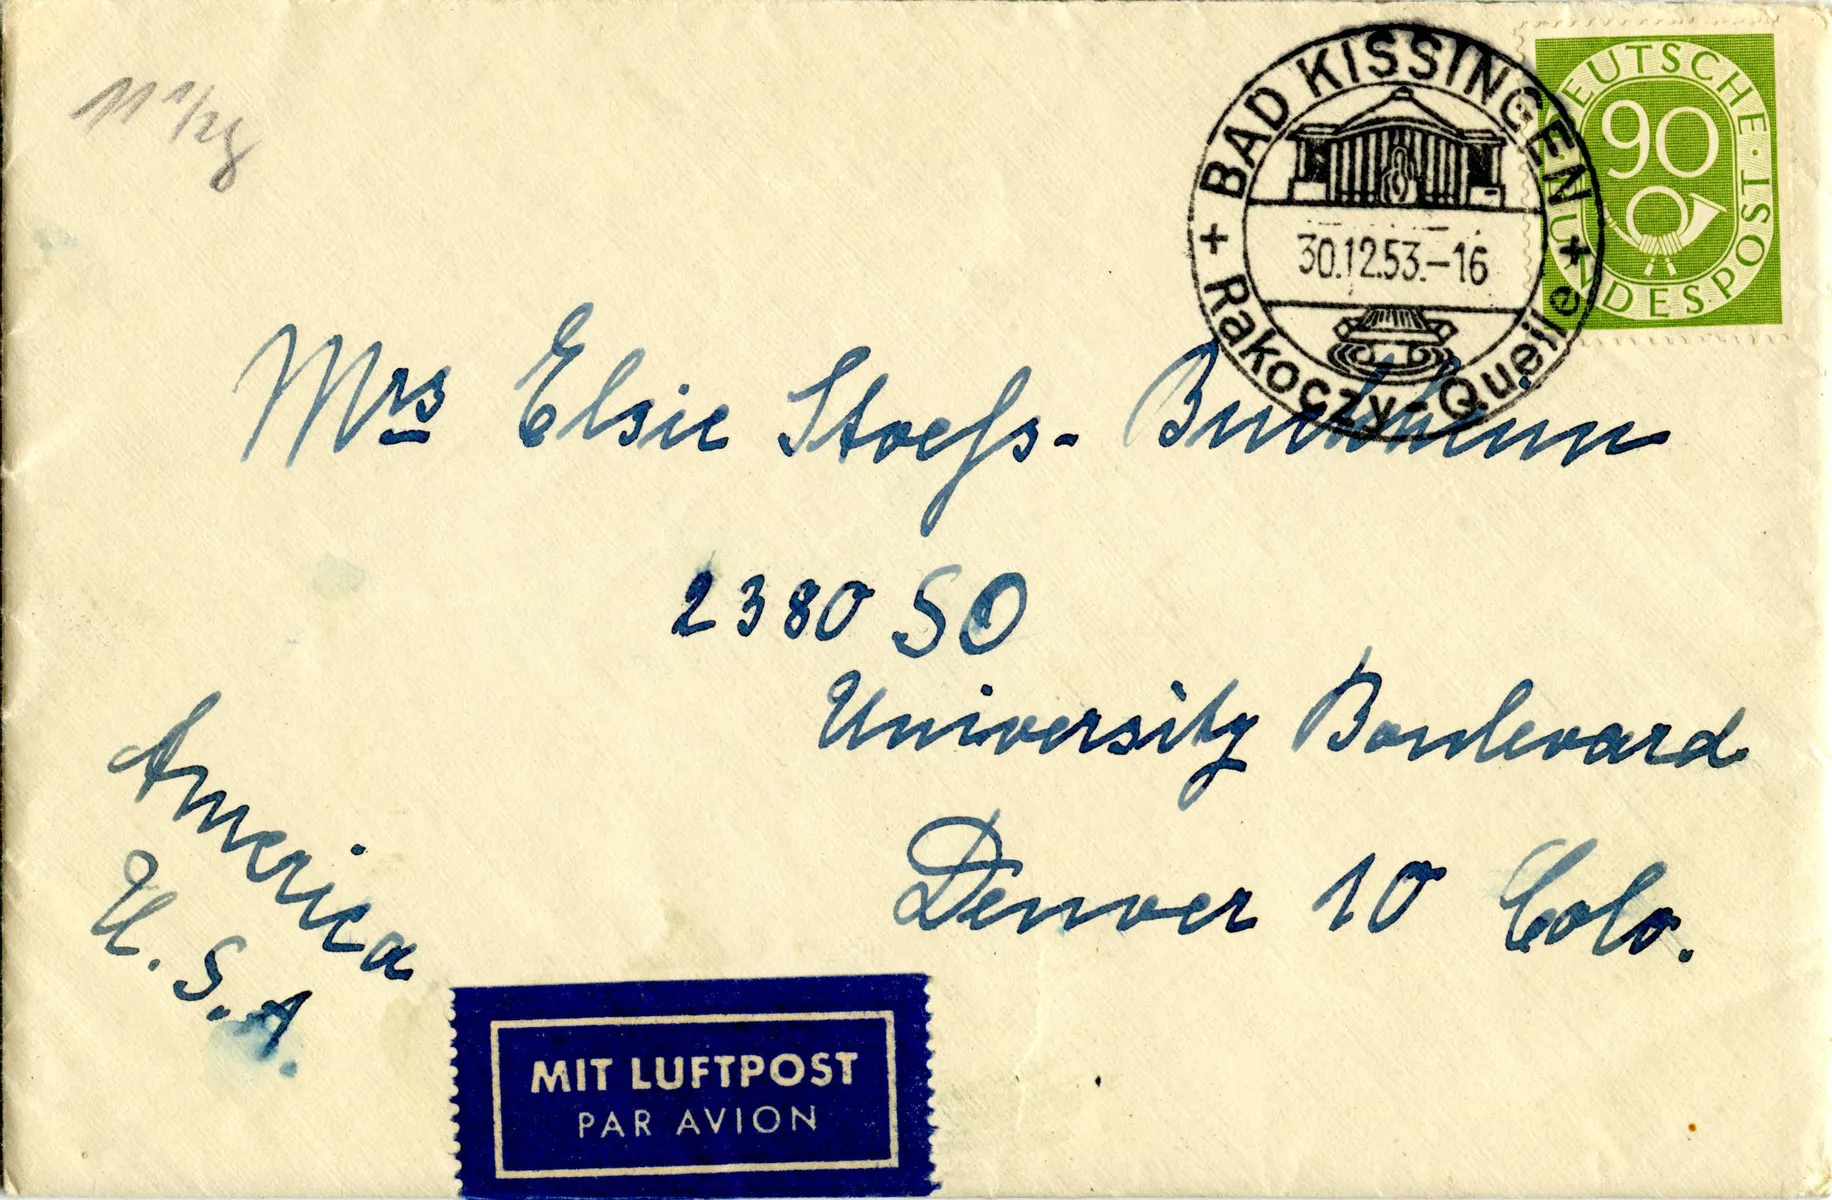 11 1/2 g
BAD KISSINGEN
30.12.53.-16
+ Rakoczy-Quelle +
DEUTSCHE · BUNDESPOST
90
Mrs Elsie Stoefs-
2380 SO
University Boulevard
Denver 10 Colo.
America
U.S.A.
MIT LUFTPOST
PAR AVION